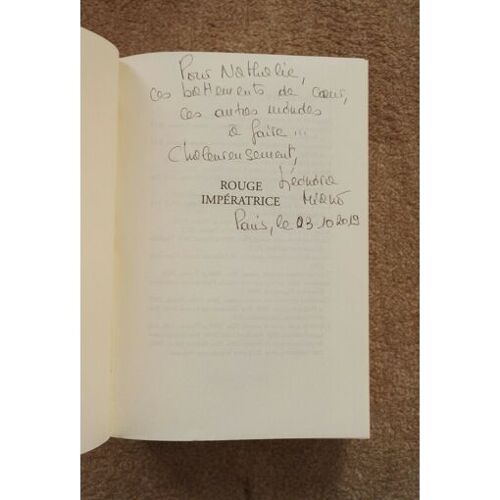 Pour Nathalie,
ces battements de cœur,
ces autres mondes
à faire...
Chaleureusement,
Léonora
Miano
ROUGE
IMPÉRATRICE
Paris, le 03.10.2019